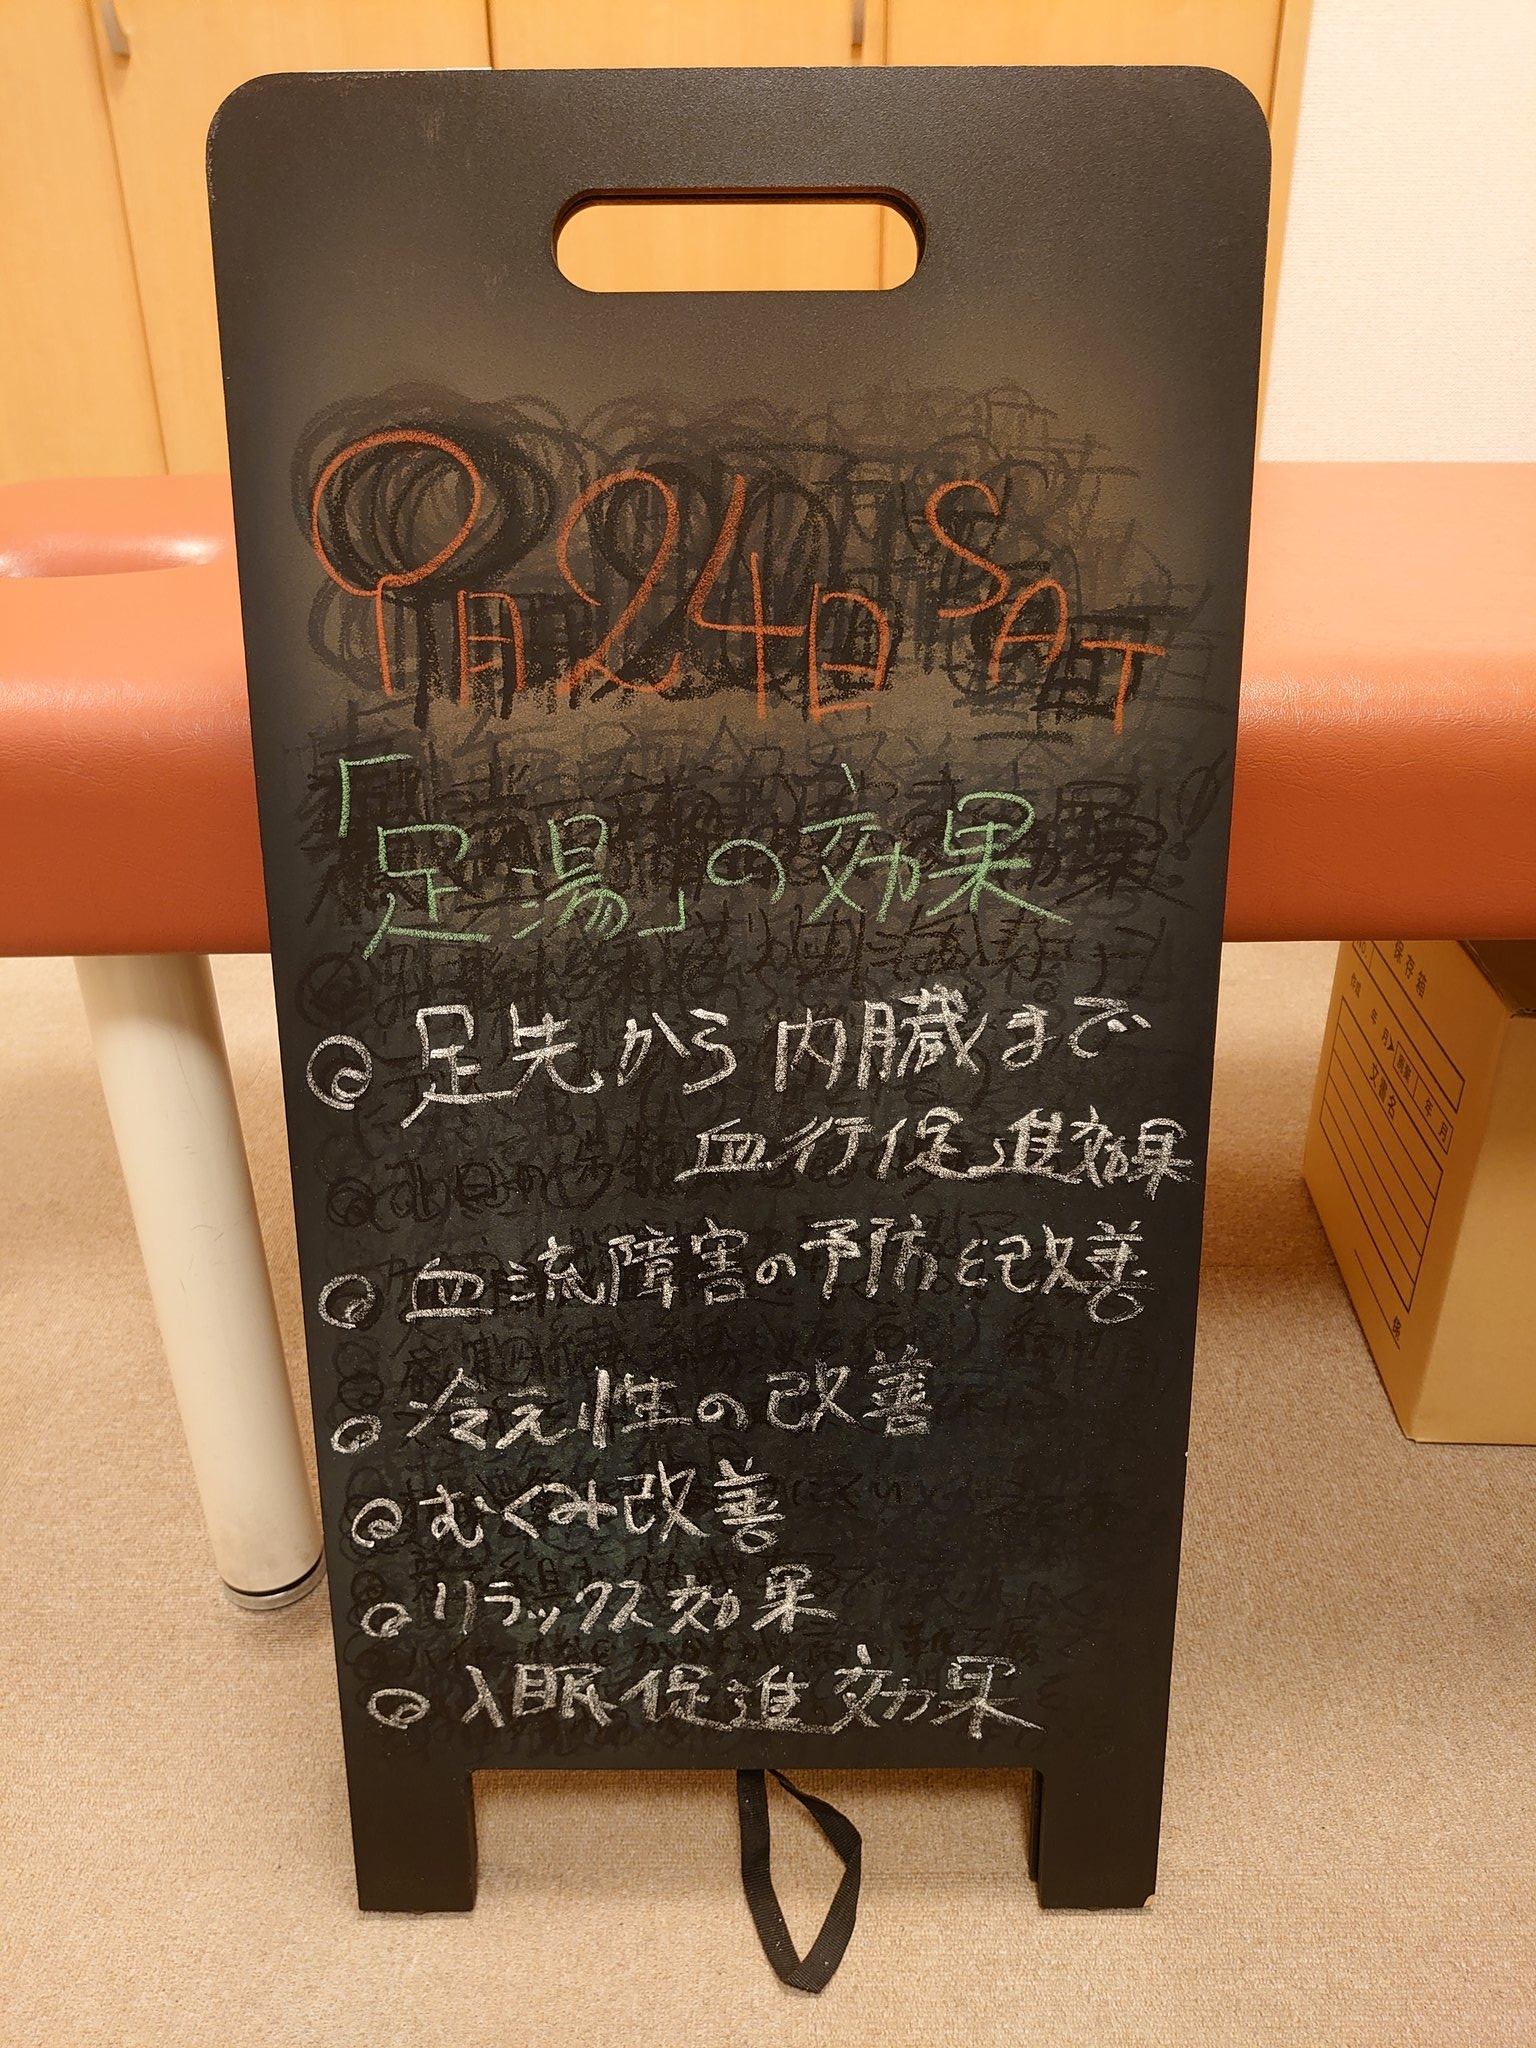 9月24日 SAT
「足湯」の効果
足先から内臓まで
血行促進効果
血流障害の予防と改善
冷え性の改善
むくみ改善
リラックス効果
入眠促進効果
保存箱
年 月
文書名
年 月